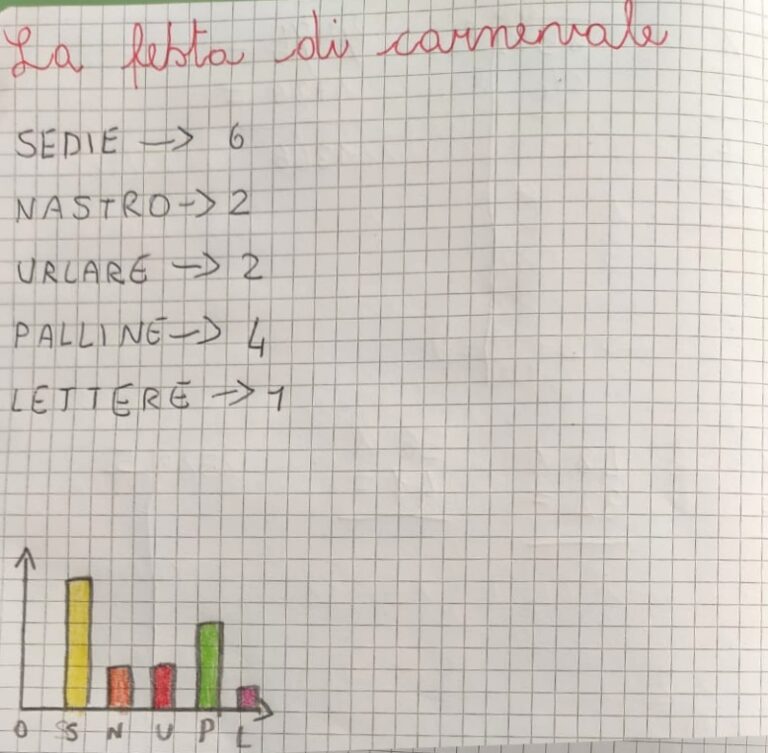 La festa di carnevale
SEDIE -> 6
NASTRO -> 2
URLARE -> 2
PALLINE -> 4
LETTERE -> 1
0 S N U P L